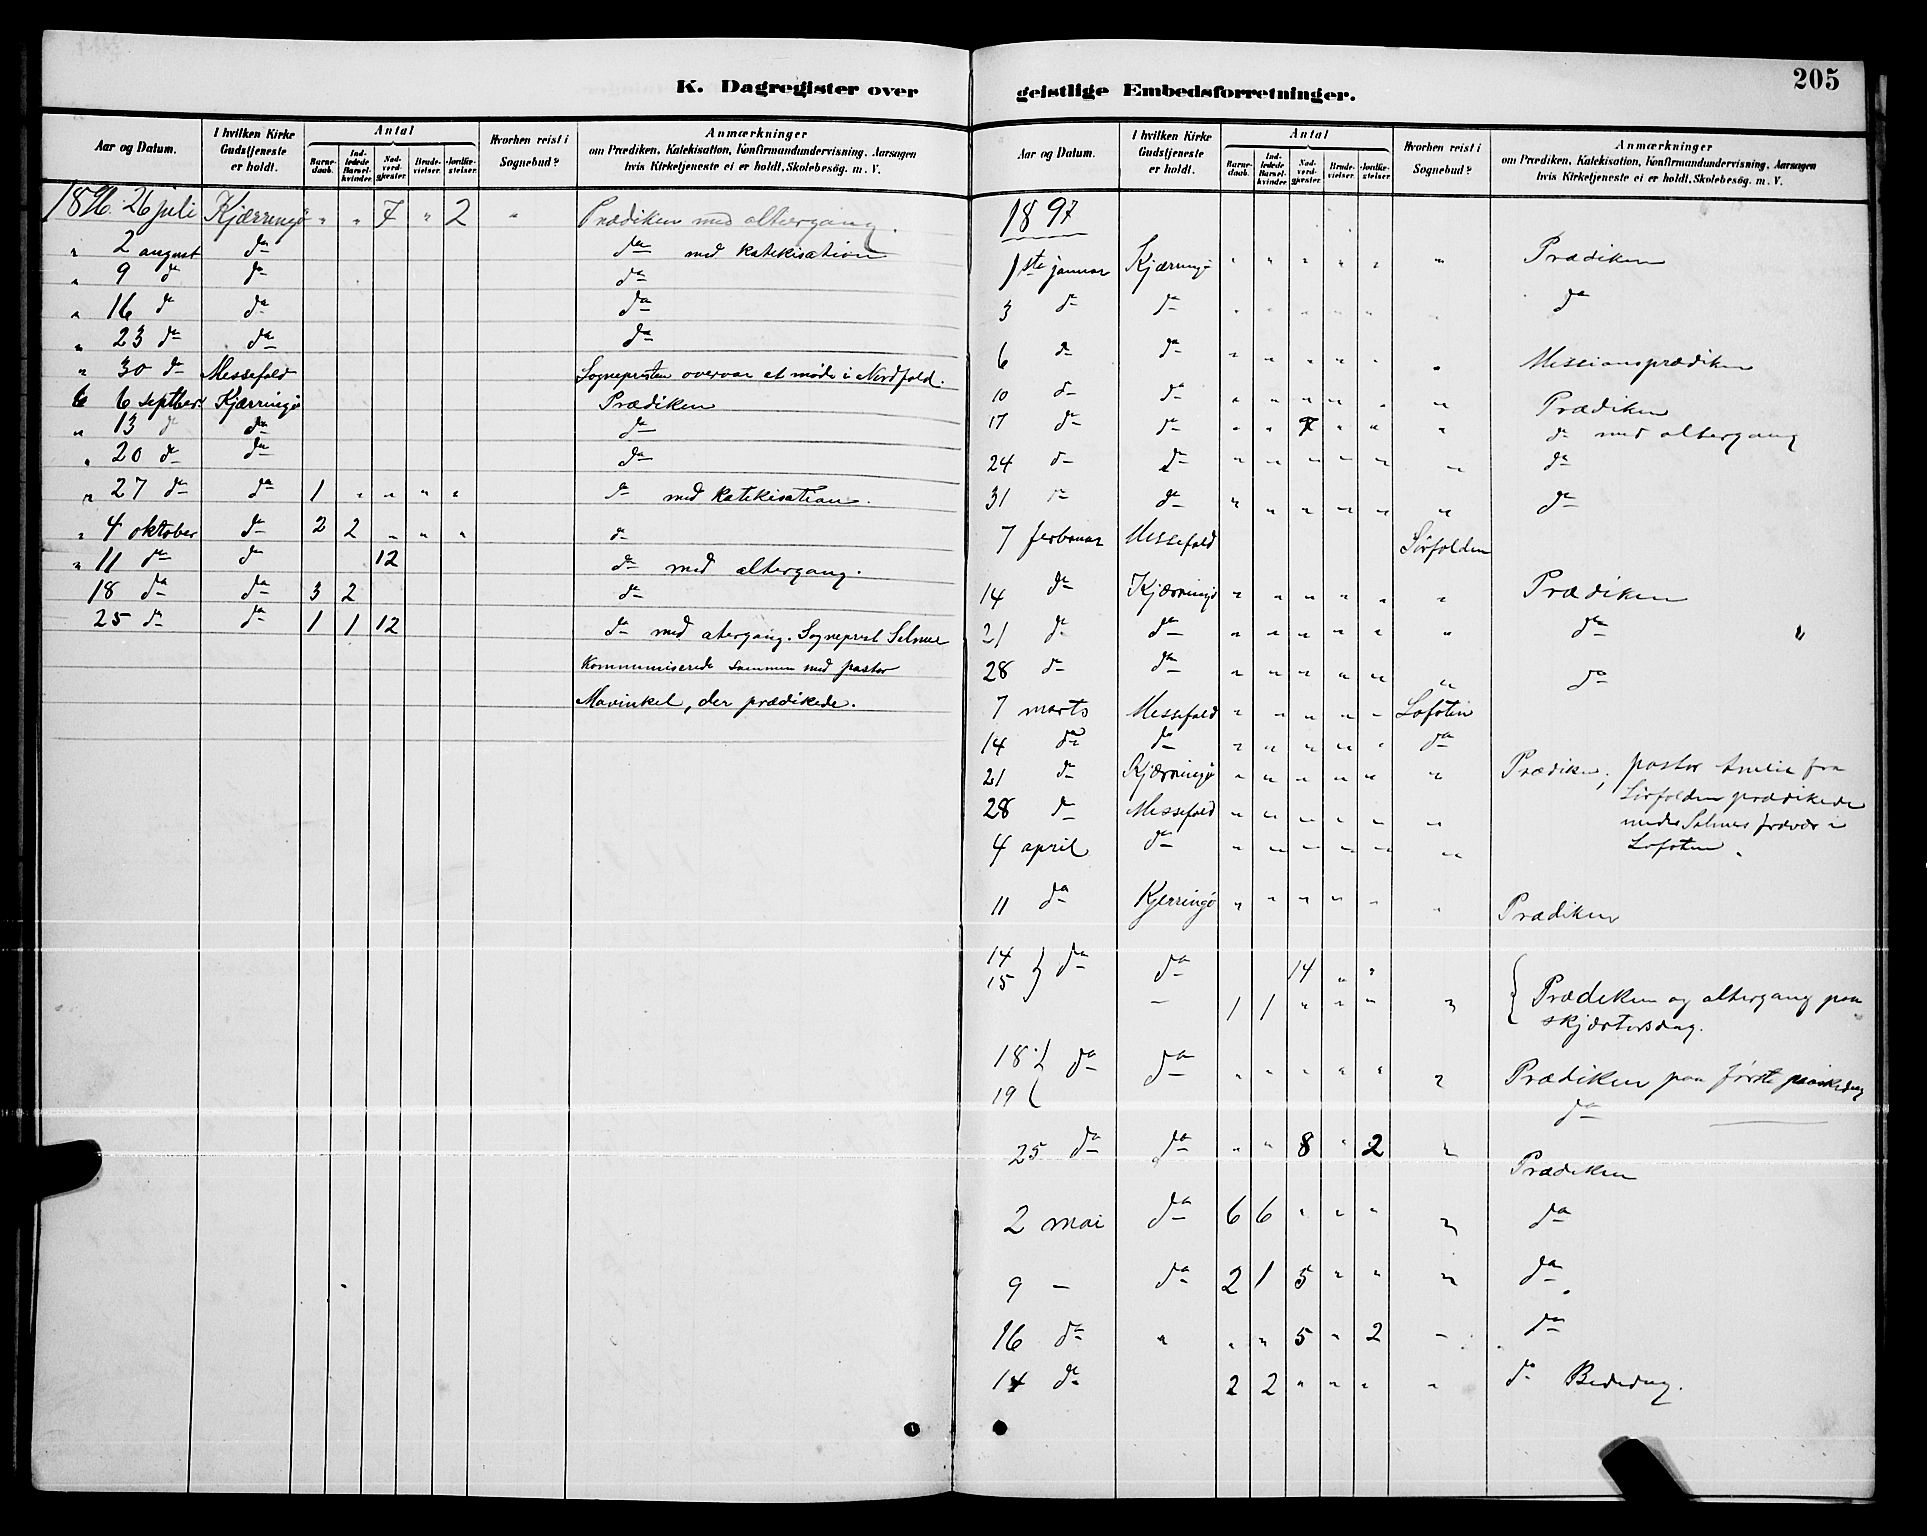 K. Dagregister over
Aar og Datum. I hvilken Kirke Gudstjeneste er holdt. Antal Barne-daab. Ind-ledede Barsel-kvinder. Nad-verd-gjester. Brude-vielser. Jordfæ-stelser. Hvorhen reist i Sognebud? Anmærkninger om Prædiken, Katekisation, Konfirmandundervisning, Aarsagen hvis Kirketjeneste ei er holdt, Skolebesøg. m. V.
1896. 26 juli Kjærringö " " 7 " 2 " Prædiken med altergang.
" 2 august da da med katekisation
" 9 da da da
" 16 da da da
" 23 da da da
" 30 da Messefald Sognepresten overvar et möde i Nordfold.
6 septber Kjærringö Prædiken
" 13 da da da
" 20 da da da
" 27 da da 1 " " " " da med katekisation.
" 4 oktober da 2 2 " " " da
" 11 da da 12 da med altergang.
18 da da 3 2 da
25 da da 1 1 12 da med atergang. Sogneprest Selmer
kommuniserede sammen med pastor
Mavinkel, der prædikede.
geistlige Embedsforretninger.
205
Aar og Datum. I hvilken Kirke Gudstjeneste er holdt. Antal Barne-daab. Ind-ledede Barsel-kvinder. Nad-verd-gjester. Brude-vielser. Jordfæ-stelser. Hvorhen reist i Sognebud? Anmærkninger om Prædiken, Katekisation, Konfirmandundervisning, Aarsagen hvis Kirketjeneste ei er holdt, Skolebesøg. m. V.
1897
1ste januar Kjærringö " " " " " " Prædiken
3 da da " " " " " " da
6 da da " " " " " " Missionsprædiken
10 da da " " " " " " Prædiken
17 da da " " 7 " " " da med altergang
24 da da " " " " " " da
31 da da " " " " " " da
7 ferbruar Messefald Sörfolden
14 da Kjærringö " " " " " " Prædiken
21 da da " " " " " " da
28 da da " " " " " " da
7 marts Messefald " " " " " Lofoten
14 da da " " " " " da
21 da Kjærringö " " " " " " Prædiken, pastor fra
28 da Messefald " " " " " " Sörfolden prædikede
4 april da " " " " " " under Selmers fravær i
Lofoten.
11 da Kjerringö " " " " " " Prædiken
14 } da da 14 " "
15 – 1 1 " " " " { Prædiken og altergang paa
skjærtorsdag.
18 } da da " " " " " " Prædiken paa förste paaskedag
19 da
25 da da " " 8 " 2 " Prædiken
2 mai da 6 6 " " " " da
9 – da 2 1 5 " " " da
16 da " " " 5 " 2 – da
14 da 2 2 " " " " da Bededag.